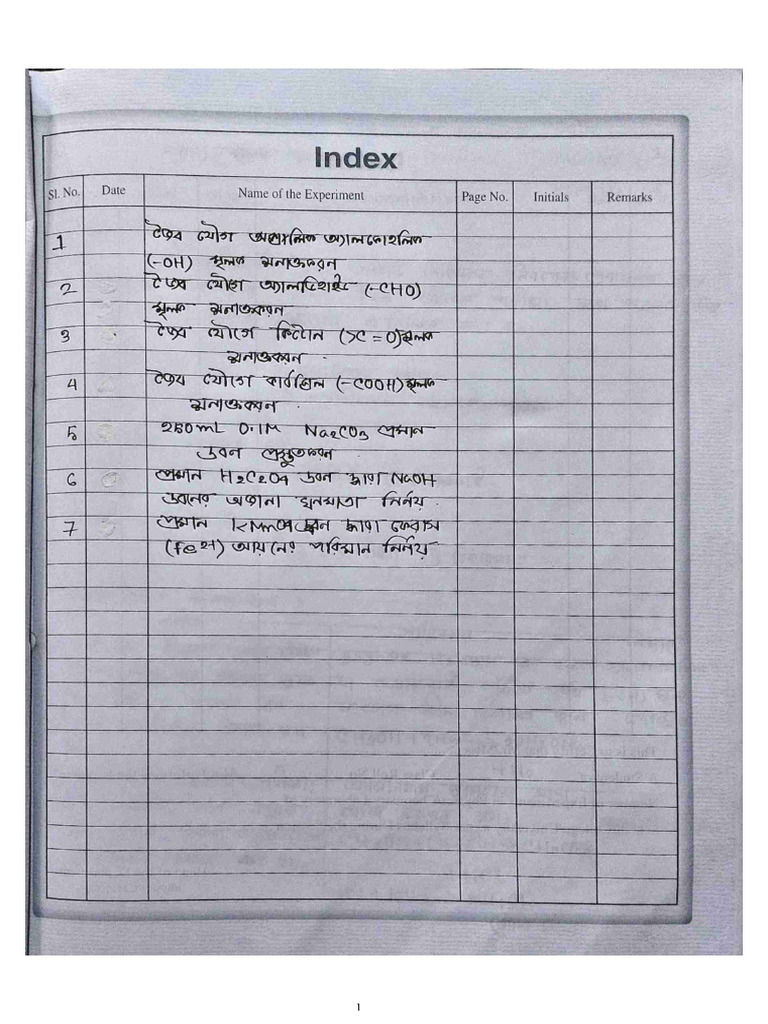 Index
Sl. No. Date Name of the Experiment Page No. Initials Remarks
1 জৈব যৌগ অ্যালকোহলিক
(-OH) মূলক সনাক্তকরন
2 জৈব যৌগে অ্যালডিহাইড (-CHO)
মূলক সনাক্তকরন
3 জৈব যৌগে কিটোন (>C=O) মূলক
সনাক্তকরন .
4 জৈব যৌগে কার্বক্সিল (-COOH) মূলক
সনাক্তকরন .
5 250mL 0.1M Na2CO3 প্রমান
দ্রবন প্রস্তুতকরন .
6 প্রমান H2C2O4 দ্রবন দ্বারা NaOH
দ্রবনের অজানা ঘনমাত্রা নির্নয় .
7 প্রমান KMnO4 দ্রবন দ্বারা ফেরাস
(Fe2+) আয়নের পরিমান নির্নয়
1